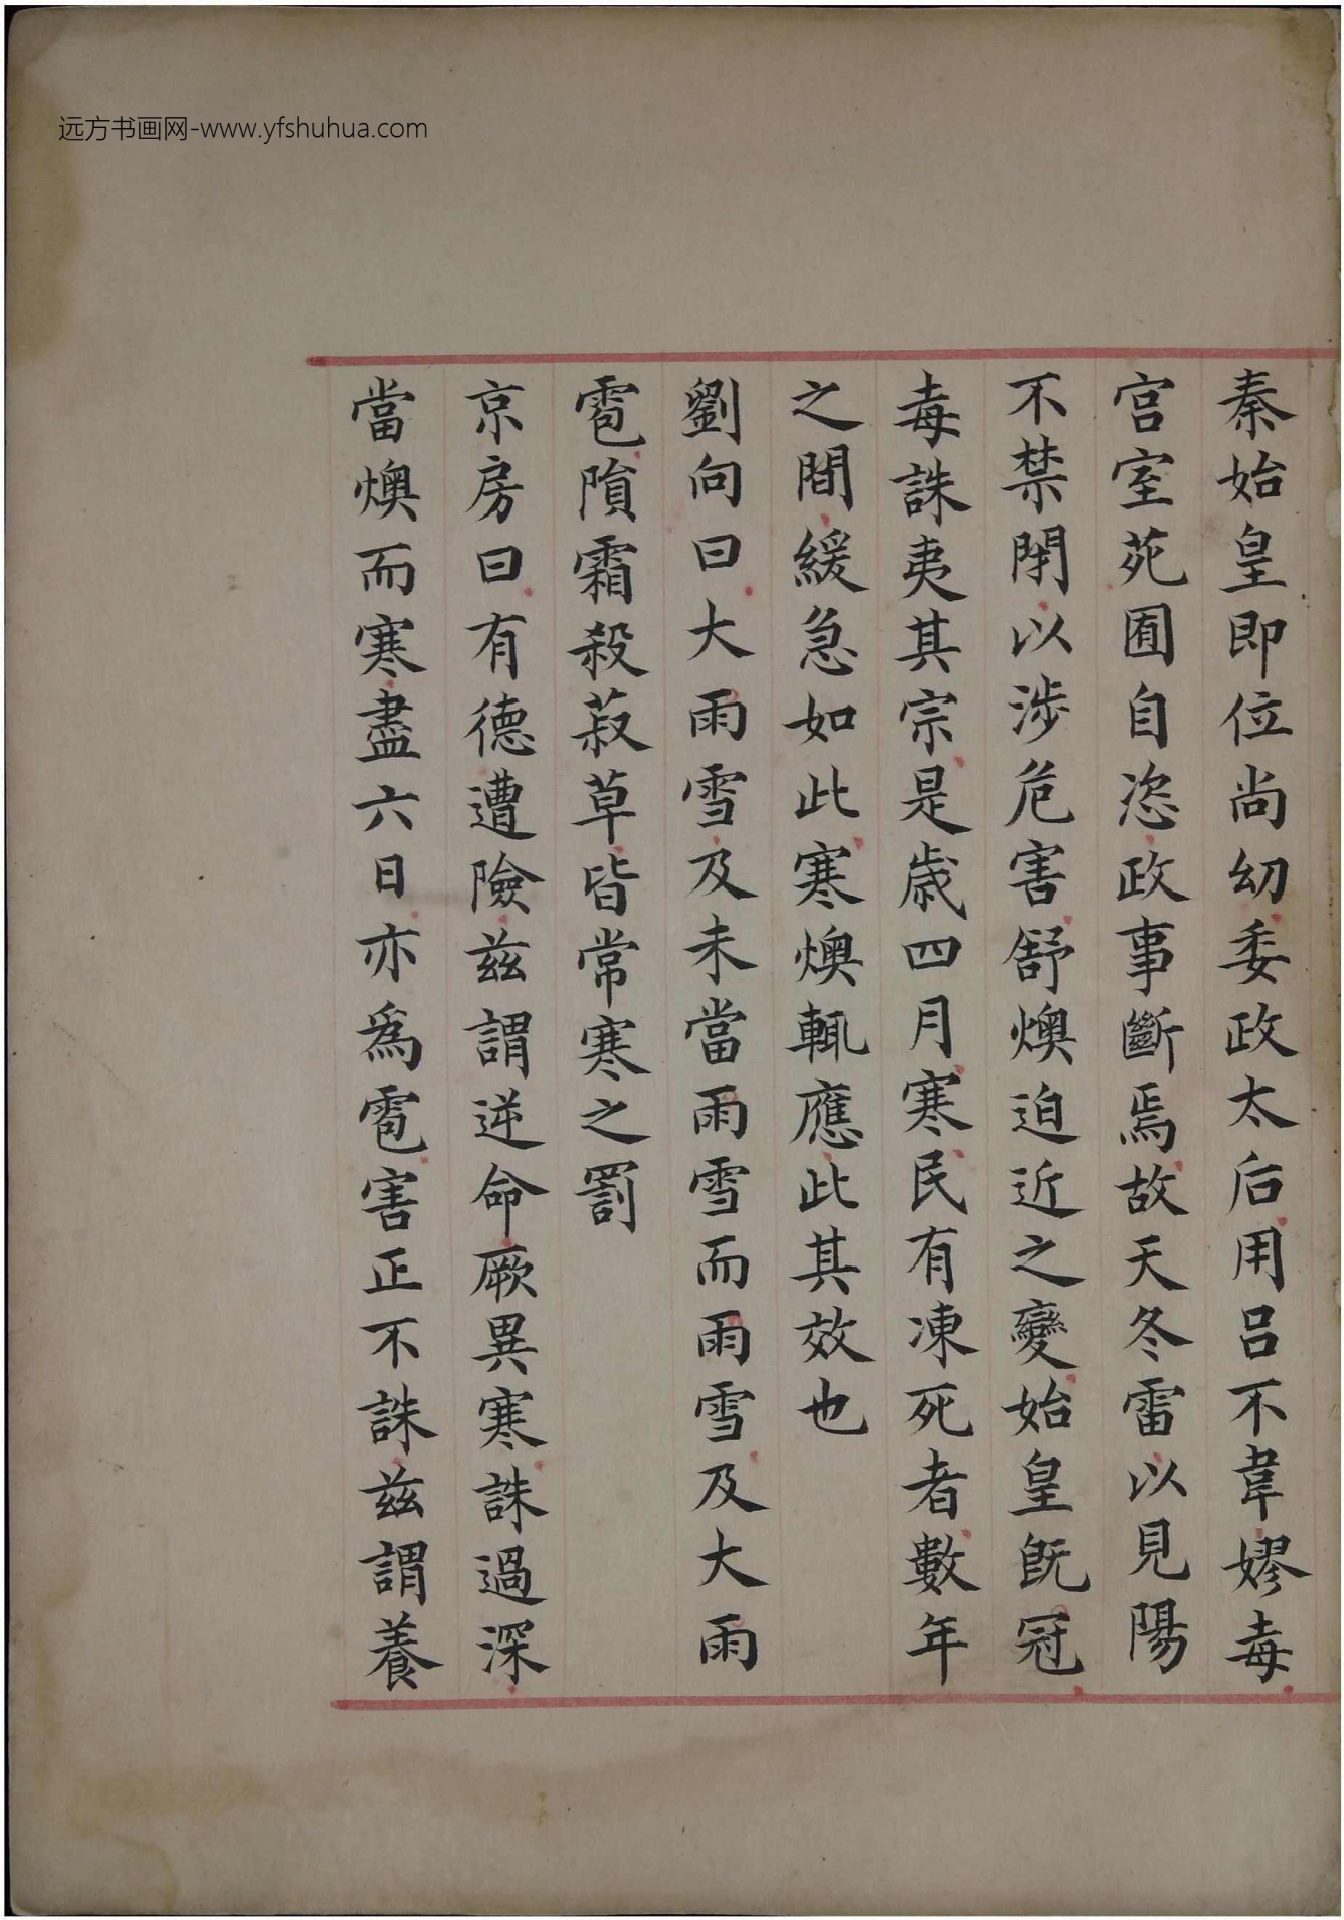 远方书画网-www.yfshuhua.com
秦始皇即位尚幼委政太后用吕不韋嫪毐
宫室苑囿自恣政事斷焉故天冬雷以見陽
不禁閉以涉危害舒燠迫近之變始皇既冠
毐誅夷其宗是歲四月寒民有凍死者數年
之間緩急如此寒燠輒應此其效也
劉向曰大雨雪及未當雨雪而雨雪及大雨
雹隕霜殺菽草皆常寒之罰
京房曰有德遭險兹謂逆命厥異寒誅過深
當燠而寒盡六日亦為雹害正不誅兹謂養